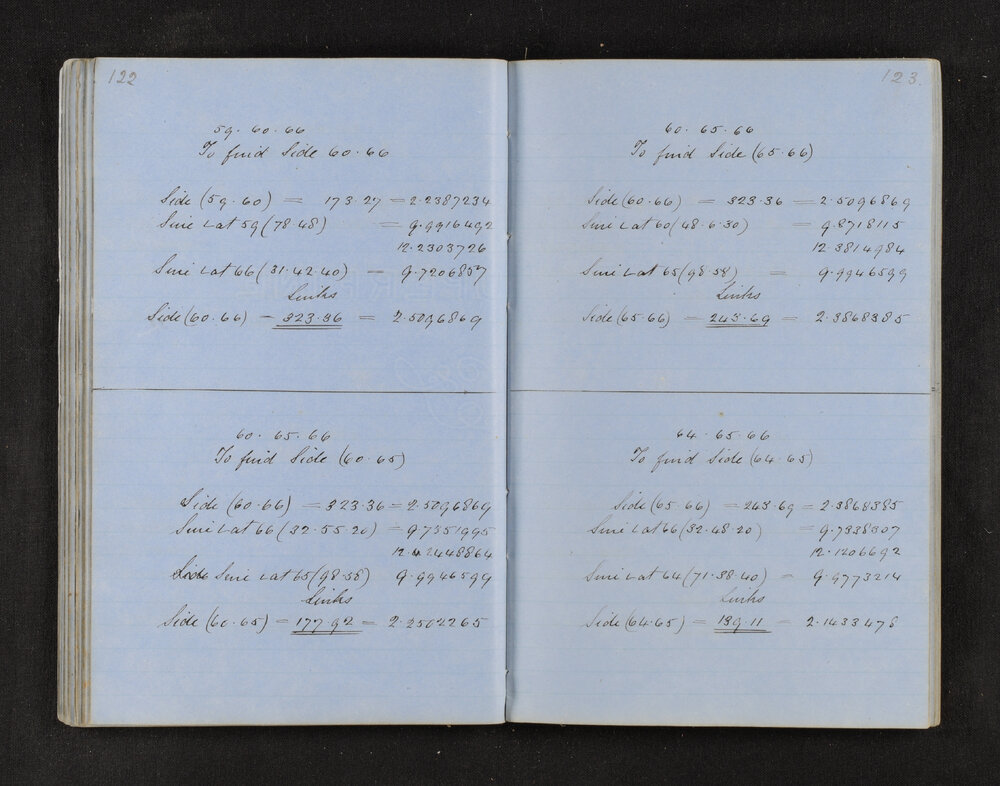 122
59. 60. 66
To find Side 60.66
Side (59.60) = 173.27 = 2.2387234
Sine ∠ at 59 (78.48) = 9.9916492
12.2303726
Sine ∠ at 66 (31.42.40) = 9.7206857
Links
Side (60.66) = 323.36 = 2.5096869
60. 65. 66
To find Side (60.65)
Side (60.66) = 323.36 = 2.5096869
Sine ∠ at 66 (32.55.20) = 9.7351995
12.2448864
Side Sine ∠ at 65 (98.58) 9.9946599
Links
Side (60.65) = 177.92 = 2.2502265
123.
60. 65. 66
To find Side (65.66)
Side (60.66) = 323.36 = 2.5096869
Sine ∠ at 60 (48.6.30) = 9.8718115
12.3814984
Sine ∠ at 65 (98.58) = 9.9946599
Links
Side (65.66) = 243.69 = 2.3868385
64. 65. 66
To find Side (64.65)
Side (65.66) = 243.69 = 2.3868385
Sine ∠ at 66 (32.48.20) = 9.7338307
12.1206692
Sine ∠ at 64 (71.38.40) = 9.9773214
Links
Side (64.65) = 139.11 = 2.1433478